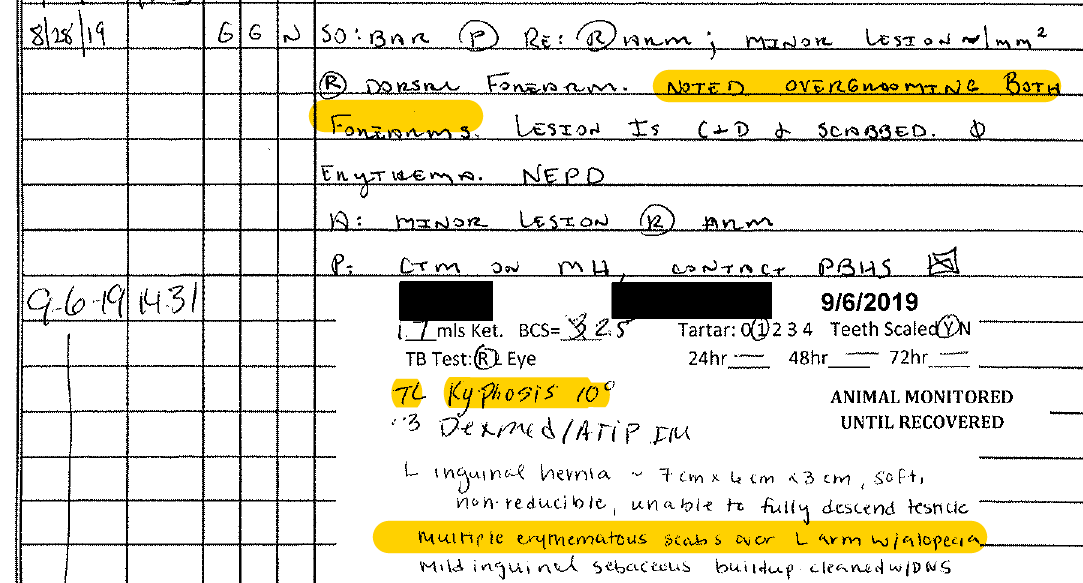 8/28/19 G G N SO: BAR (P) RE: (R) ARM ; MINOR LESION ~1mm²
(R) DORSAL FOREARM. NOTED OVERGROOMING BOTH
FOREARMS. LESION IS C+D & SCABBED. Ø
ERYTHEMA. NEPD
A: MINOR LESION (R) ARM
P: CTM ON MH, CONTACT PBHS
9-6-19 1431 9/6/2019
1.7 mls Ket. BCS= 2.5 Tartar: 0 1 2 3 4 Teeth Scaled Y N
TB Test: R L Eye 24hr 48hr 72hr
TL Kyphosis 10°
ANIMAL MONITORED
UNTIL RECOVERED
.3 Dexmed/ATIP IM
L inguinal hernia ~ 7cm x 6cm x 3cm, soft,
non-reducible, unable to fully descend testicle
Multiple erythematous scabs over L arm w/alopecia
Mild inguinal sebaceous buildup cleaned w/